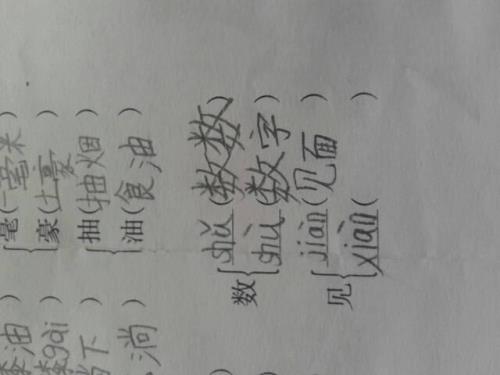 油) 毫(一毫米)
gài) 豪(土豪)
下) 抽(抽烟)
淌) 油(食油)
) shǔ(数数)
数
) shù(数字)
jiàn(见面)
见
xiàn( )